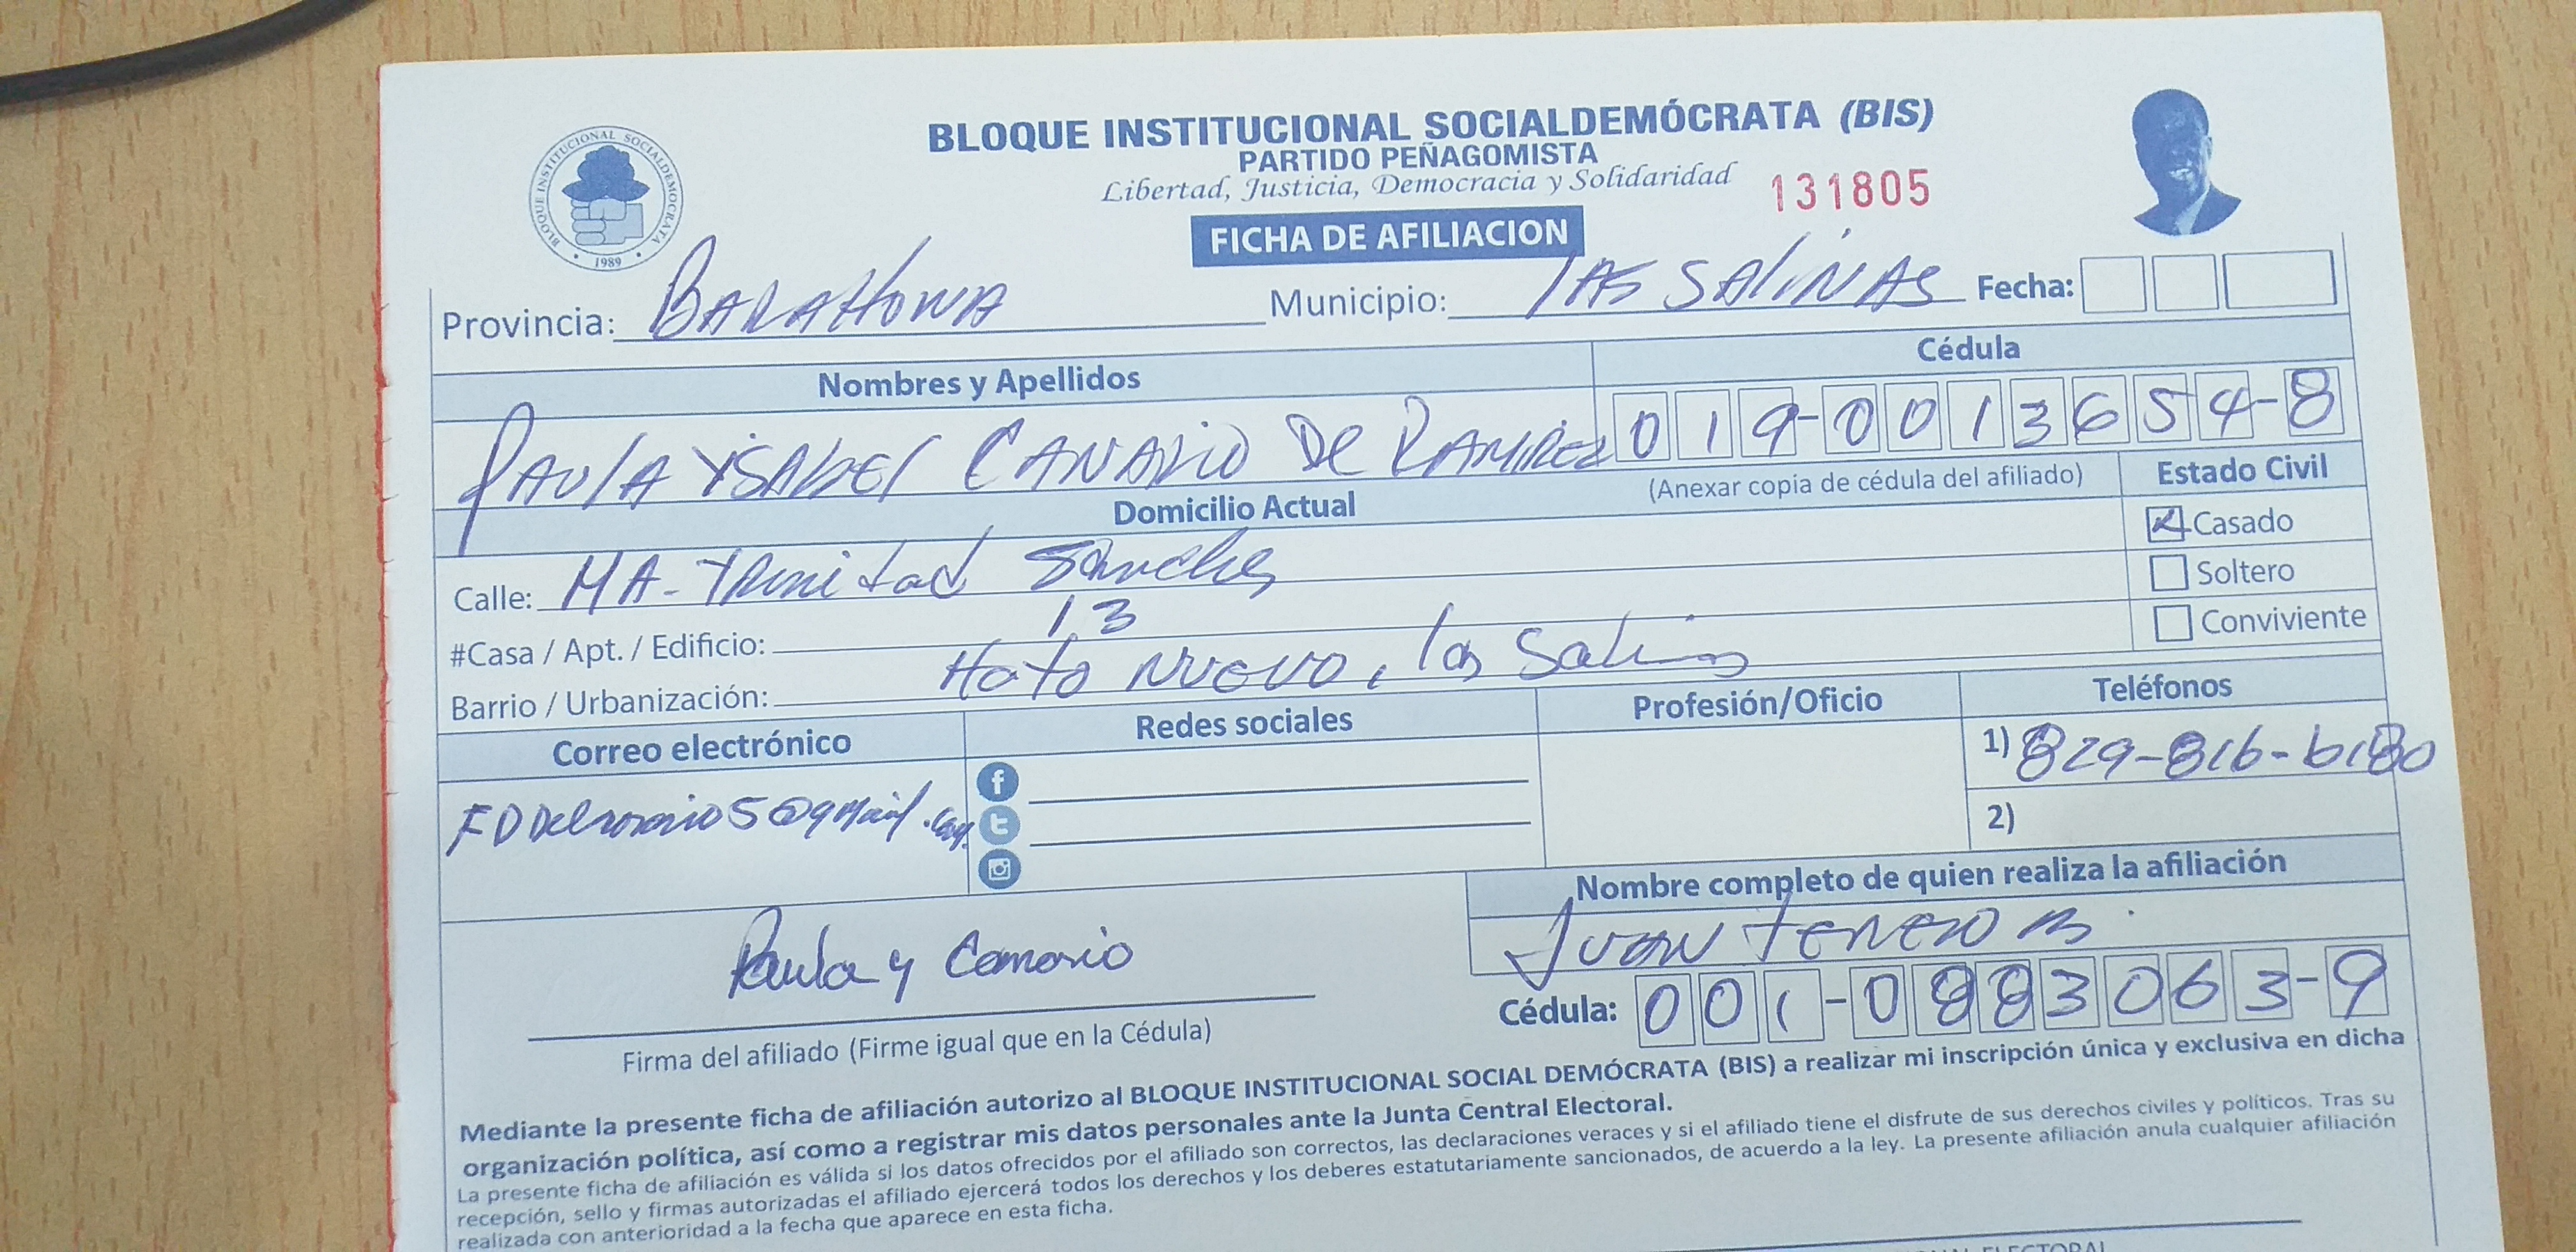 BLOQUE INSTITUCIONAL SOCIALDEMÓCRATA (BIS)
PARTIDO PEÑAGOMISTA
Libertad, Justicia, Democracia y Solidaridad
131805
BLOQUE INSTITUCIONAL SOCIALDEMOCRATA
1989
FICHA DE AFILIACION
Provincia: BARAHONA Municipio: LAS SALINAS Fecha:
Nombres y Apellidos Cédula
PAULA YSABEL CANARIO DE RAMIREZ 019-0013654-8
(Anexar copia de cédula del afiliado)
Domicilio Actual Estado Civil
Casado
Calle: MA. Trinidad Sanchez
Soltero
#Casa / Apt. / Edificio: 13
Conviviente
Barrio / Urbanización: Hato Nuevo, las Salinas
Correo electrónico Redes sociales Profesión/Oficio Teléfonos
1) 829-816-6180
FDDelrosario5@gmail.com
2)
Nombre completo de quien realiza la afiliación
JUAN TENERO B.
Paula y Canario
Cédula: 001-0883063-9
Firma del afiliado (Firme igual que en la Cédula)
Mediante la presente ficha de afiliación autorizo al BLOQUE INSTITUCIONAL SOCIAL DEMÓCRATA (BIS) a realizar mi inscripción única y exclusiva en dicha
organización política, así como a registrar mis datos personales ante la Junta Central Electoral.
La presente ficha de afiliación es válida si los datos ofrecidos por el afiliado son correctos, las declaraciones veraces y si el afiliado tiene el disfrute de sus derechos civiles y políticos. Tras su
recepción, sello y firmas autorizadas el afiliado ejercerá todos los derechos y los deberes estatutariamente sancionados, de acuerdo a la ley. La presente afiliación anula cualquier afiliación
realizada con anterioridad a la fecha que aparece en esta ficha.